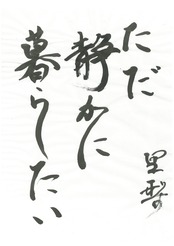 ただ
静かに
暮らしたい